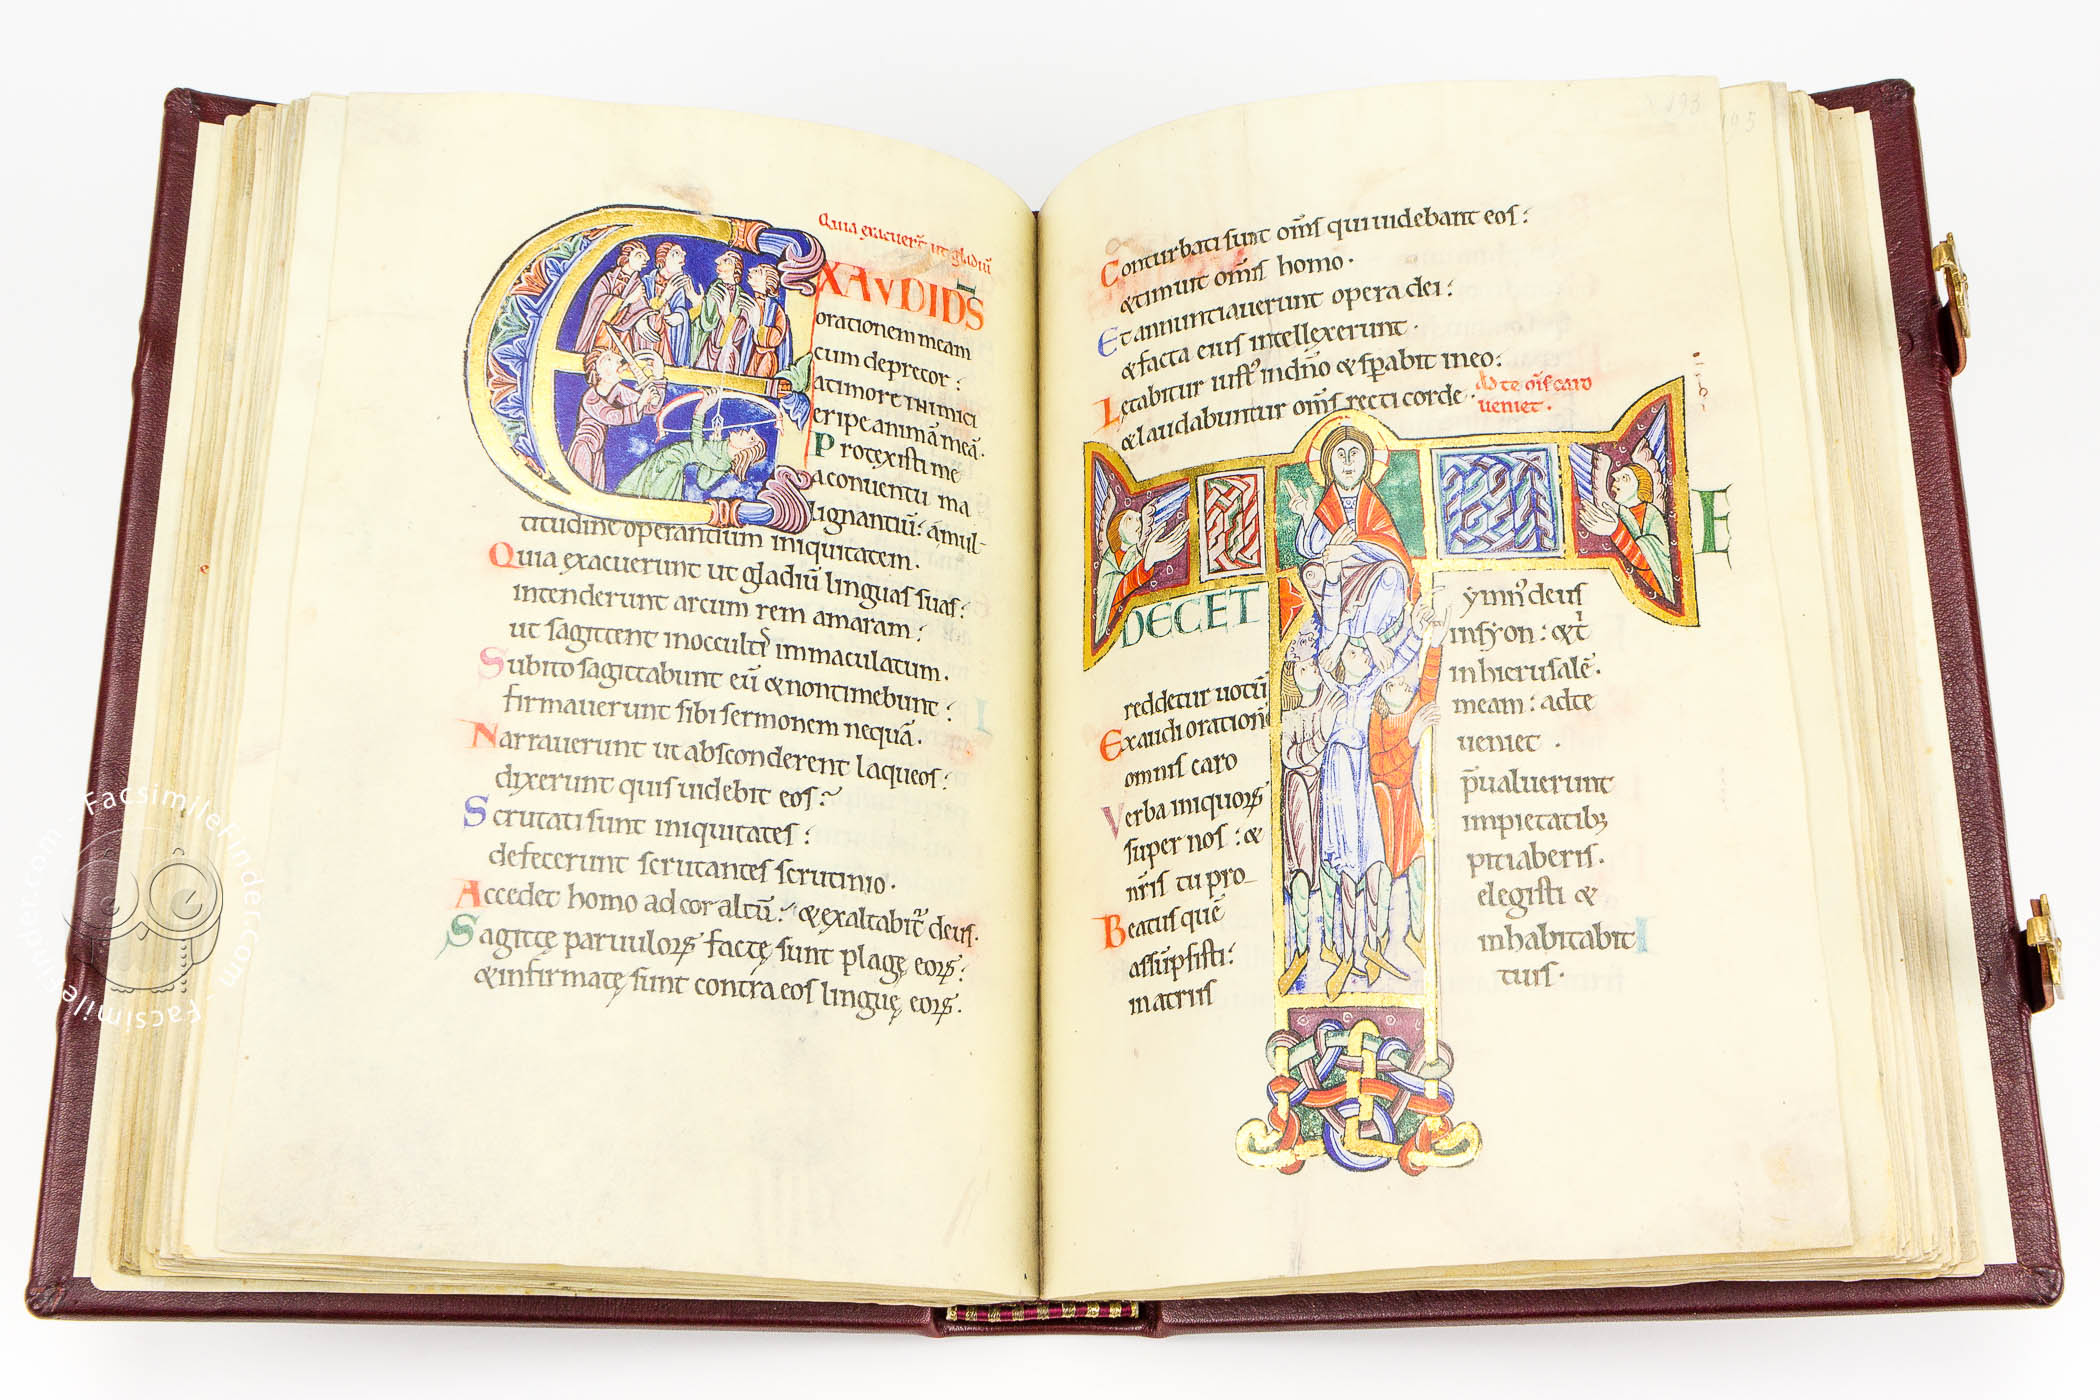 Quia exacuer̃t ut gladiũ
EXAVDI DS̄
orationem meam
cum deprecor:
a timore inimici
eripe animã meã.
Protexisti me
a conuentu ma
lignantiũ: a mul-
titudine operantium iniquitatem.
Quia exacuerunt ut gladiũ linguas suas:
intenderunt arcum rem amaram:
ut sagittent in occultis immaculatum.
Subito sagittabunt eũ & non timebunt:
firmauerunt sibi sermonem nequã.
Narrauerunt ut absconderent laqueos:
dixerunt quis uidebit eos:
Scrutati sunt iniquitates:
defecerunt scrutantes scrutinio.
Accedet homo ad cor altũ: & exaltabit̃ deus.
Sagittę paruuloꝝ factę sunt plagę eoꝝ:
& infirmatę sunt contra eos linguę eoꝝ.
193
Conturbati sunt om̃s qui uidebant eos:
& timuit om̃is homo.
Et annuntiauerunt opera dei:
& facta eius intellexerunt.
Lętabitur iust' in dño & sp̃abit in eo:
& laudabuntur om̃s recti corde.
Ad te om̃is caro
ueniet.
TE
DECET
ymn' deus
in syon: & t
reddetur uotũ in hierusalẽ.
Exaudi orationẽ meam: ad te
omnis caro ueniet.
Verba iniquoꝝ p̃ualuerunt
super nos: & impietatibꝫ
nr̃is tu pro pitiaberis.
Beatus quẽ elegisti &
assũpsisti: inhabitabit
in atriis tuis.
FacsimileFinder.com